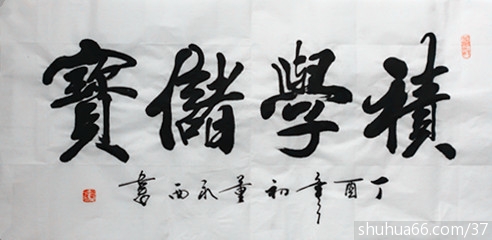 積學儲寶
丁酉年初董永西書
shuhua66.com/37